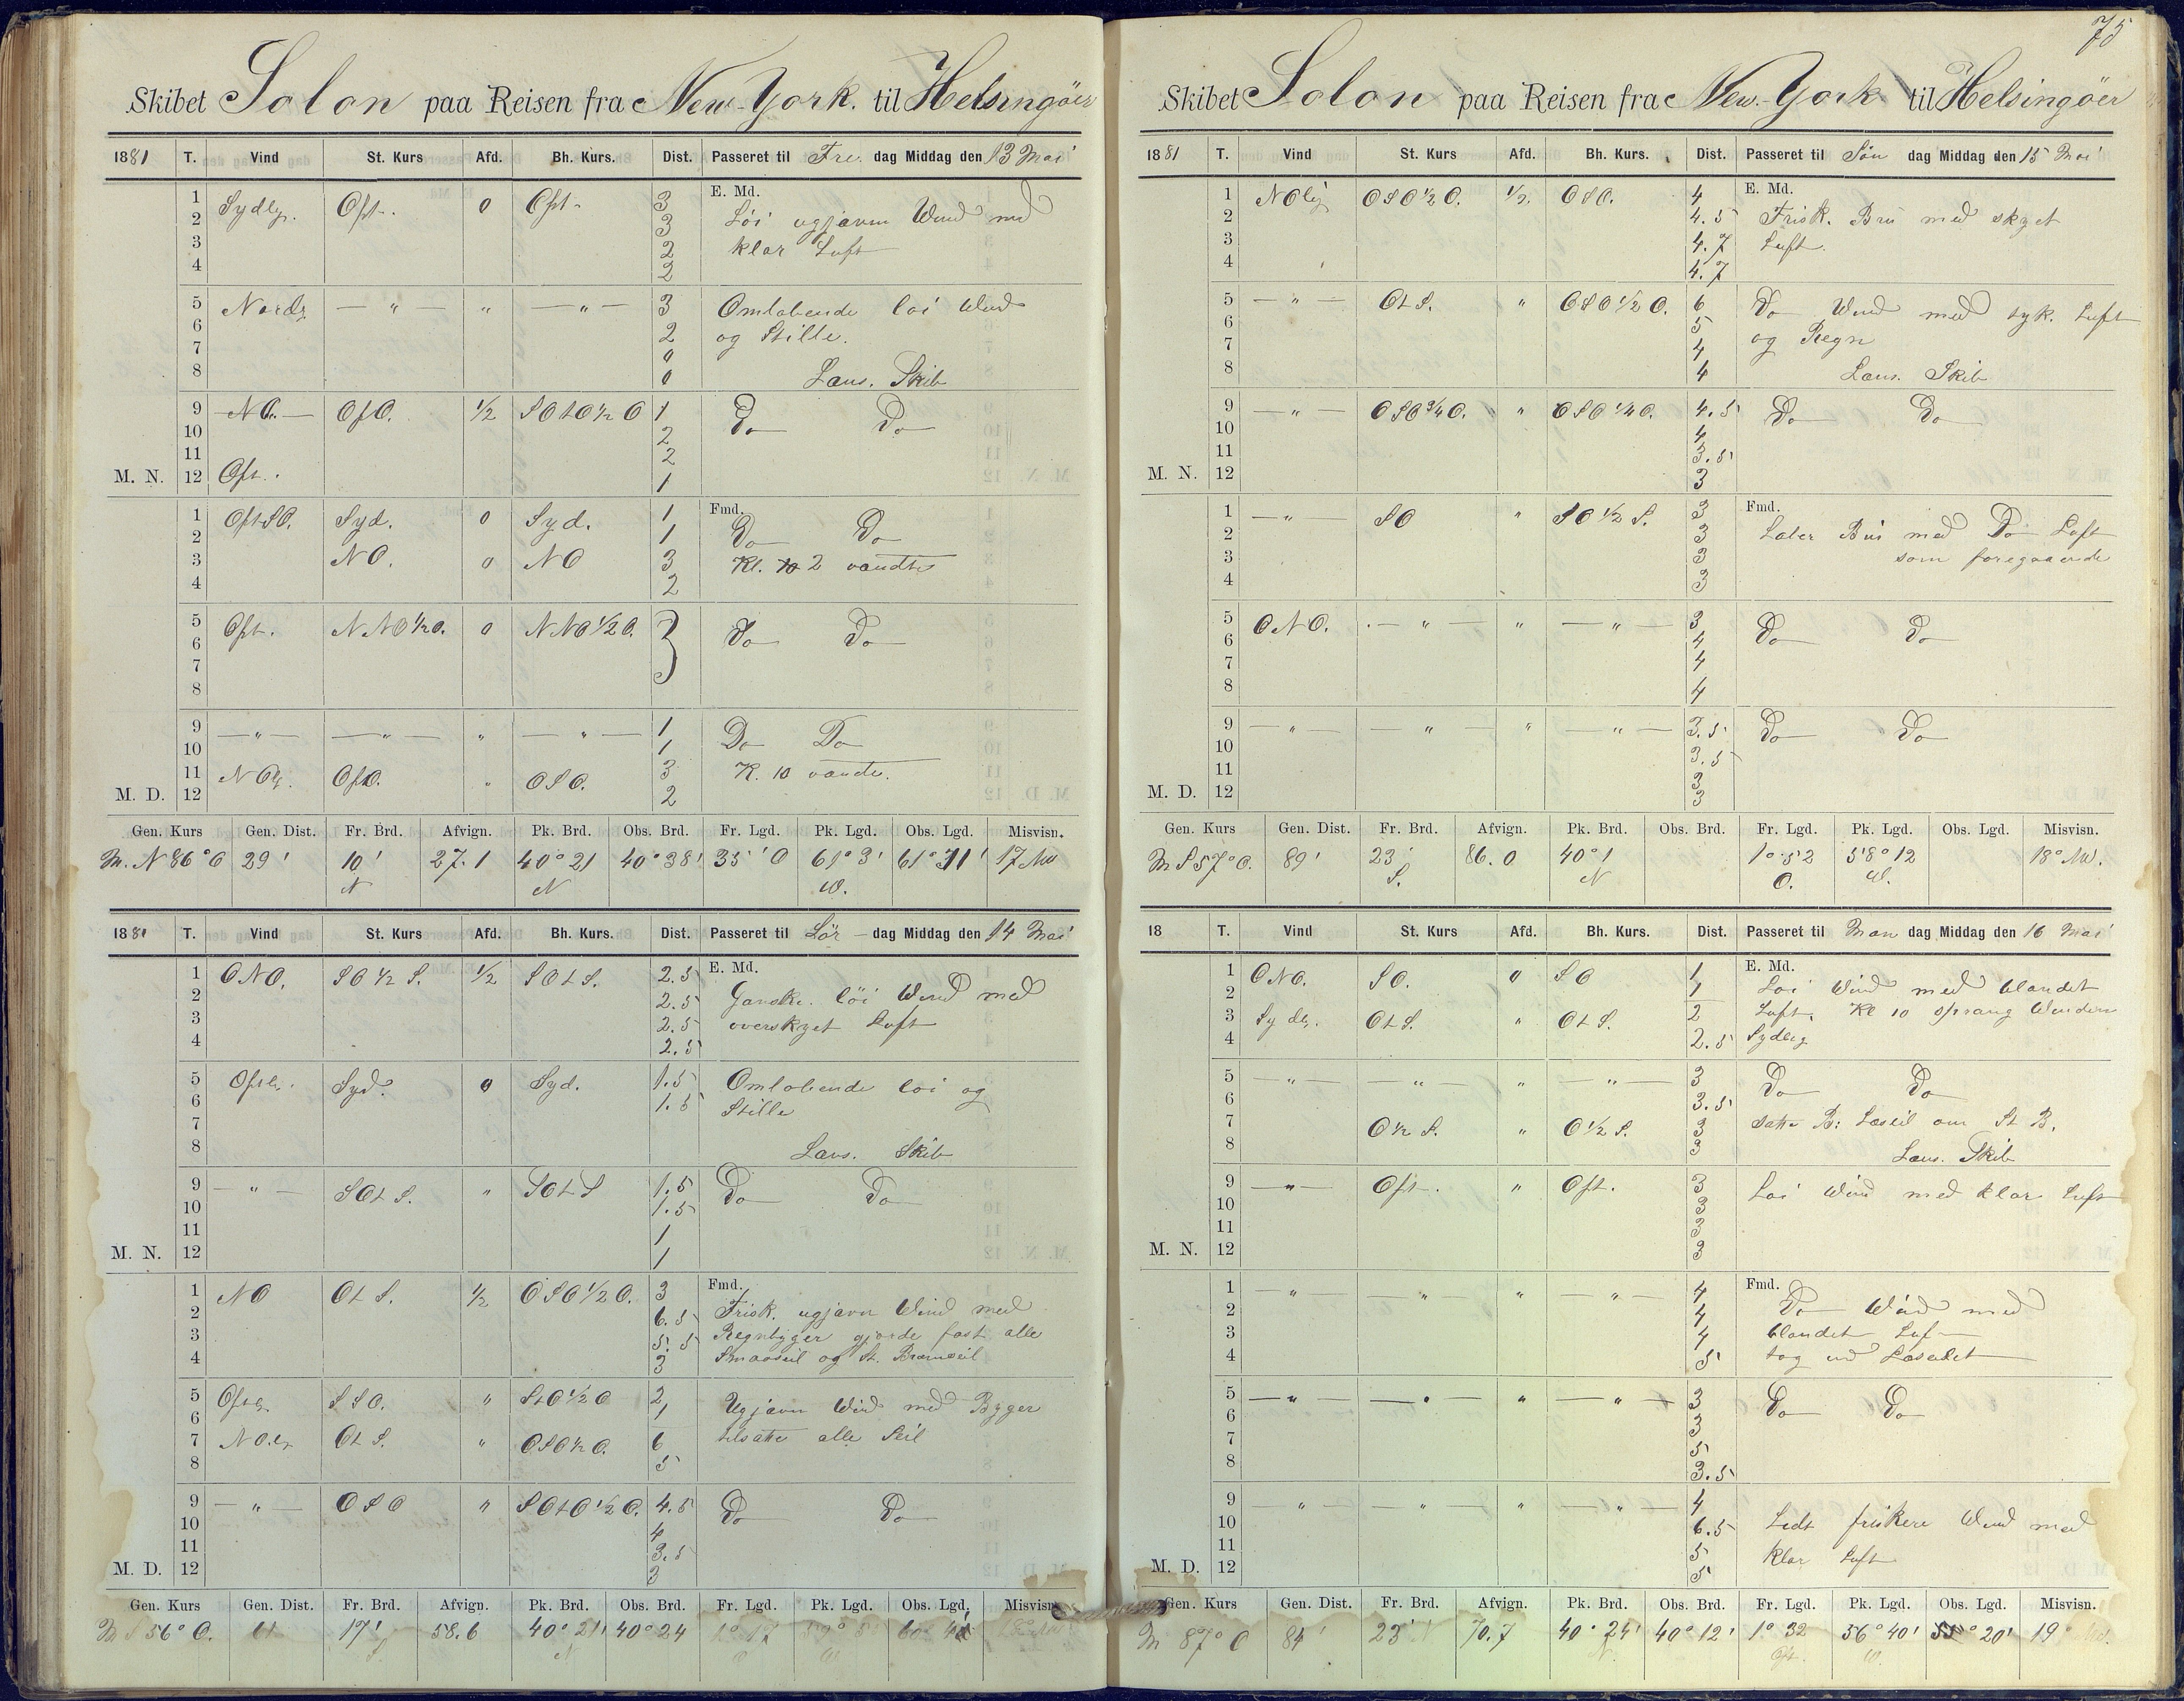 Skibet Solon paa Reisen fra New-York. til Helsingöer
1881 T. Vind St. Kurs Afd. Bh. Kurs. Dist. Passeret til Fre. dag Middag den 13 Mai
E. Md.
1 Sydlg. Øst. 0 Øst 3
2 3 Löi ugjævn Wind med
3 2 klar Luft
4 2
5 Nordl — " — " — " — 3 Omlobende loi Wind
6 2 og Stille.
7 0
8 0 Læns. Skib
9 NO. — OtO. 1/2 SOtO 1/2 O 1 Do Do
10 2
11 2
M. N. 12 Øst. 1
Fmd.
1 OstSO. Syd. 0 Syd. 1
2 1 Do Do
3 NO. 0 NO 3 Kl. 2 vendte
4 2
5 Øst. NNO 1/2 O. 0 NNO 1/2 O. 3 Do Do
6
7
8
9 — " — — " — " — " — 1 Do Do
10 1
11 NOlg. OtO. " OSO. 3 K. 10 vendte.
M. D. 12 2
Gen. Kurs Gen. Dist. Fr. Brd. Afvign. Pk. Brd. Obs. Brd. Fr. Lgd. Pk. Lgd. Obs. Lgd. Misvisn.
M. N 86° O 29' 10' 27.1 40° 21 40° 38' 35' O 61° 3' 61° 11' 17 NW
N N W.
1881 T. Vind St. Kurs Afd. Bh. Kurs. Dist. Passeret til Lör — dag Middag den 14 Mai
E. Md.
1 ONO. SO 1/2 S. 1/2 SOtS. 2.5
2 2.5 Ganske löi Wind med
3 2.5 overskyet Luft
4 2.5
5 Østl. Syd. 0 Syd. 1.5 Omlobende loi og
6 1.5 Stille
7
8 Læns. Skib
9 — " — SOtS. " SOtS 1.5 Do Do
10 1.5
11 1
M. N. 12 1
Fmd.
1 NO OtS. 1/2 OSO 1/2 O. 3
2 6.5 Frisk. ugjævn Wind med
3 5.5 Regnbyger gjorde fast alle
4 3 Smaaseil og St. Bramseil
5 Østlg SSO. " StO 1/2 O 2 Ugjævn Wind med Byger
6 1
7 NO.lg OtS. " OSO 1/2 O. 6 tilsatte alle Seil
8 5
9 — " — OSO " SOtO 1/2 O. 4.5 Do Do
10 4
11 3.5
M. D. 12 3
Gen. Kurs Gen. Dist. Fr. Brd. Afvign. Pk. Brd. Obs. Brd. Fr. Lgd. Pk. Lgd. Obs. Lgd. Misvisn.
M S 56° O. 61 17' 58.6 40° 21' 40° 24 1° 17
S. N O W
75
Skibet Solon paa Reisen fra New-York til Helsingöer
1881 T. Vind St. Kurs Afd. Bh. Kurs. Dist. Passeret til Sön dag Middag den 15 Mai
E. Md.
1 NOlig OSO 1/2 O. 1/2. OSO. 4
2 4.5 Frisk. Bris med skyet
3 4.7 Luft.
4 4.7
5 — " — OtS. " OSO 1/2 O. 6 Do Wind med tyk. Luft
6 5 og Regn
7 4
8 4 Læns. Skib
9 — " — OSO 3/4 O. " OSO 1/4 O. 4.5 Do Do
10 4
11 3.5
M. N. 12 3
Fmd.
1 — " — SO " SO 1/2 S. 3
2 3 Laber Bris med Do Luft
3 3 som foregaaende
4 3
5 ONO. — " — " — " — 3 Do Do
6 4
7 4
8 4
9 — " — — " — " — " — 3.5 Do Do
10 3.5
11 3
M. D. 12 3
Gen. Kurs Gen. Dist. Fr. Brd. Afvign. Pk. Brd. Obs. Brd. Fr. Lgd. Pk. Lgd. Obs. Lgd. Misvisn.
M S 57° O. 89' 23' 86.0 40° 1 1° 52 58° 12 18° NW.
S. N O. W.
18 T. Vind St. Kurs Afd. Bh. Kurs. Dist. Passeret til Man dag Middag den 16 Mai
E. Md.
1 ONO. SO. 0 SO 1
2 1 Loi Wind med blandet
3 Sydlg. OtS. " OtS. 2 Luft. Kl 10 sprang Winden
4 2.5 Sydlig
5 — " — — " — " — " — 3 Do Do
6 3.5
7 O 1/2 S. " O 1/2 S. 3 satte B: Læseil om St B.
8 3 Læns. Skib
9 — " — Øst. " Øst. 3 Loi Wind med klar Luft
10 3
11 3
M. N. 12 3
Fmd.
1 — " — — " — " — " — 4
2 4 Do Wind med
3 4 blandet Luft
4 5 tog ind Læseilet
5 — " — — " — " — " — 3 Do Do
6 3
7 5
8 3.5
9 " — " — " — " — 4
10 6.5 Lidt friskere Wind med
11 5 klar Luft
M. D. 12 5
Gen. Kurs Gen. Dist. Fr. Brd. Afvign. Pk. Brd. Obs. Brd. Fr. Lgd. Pk. Lgd. Obs. Lgd. Misvisn.
M 87° O 84' 23' N 70.7 40° 24' 40° 12' 1° 32 56° 40' 55° 20' 19° NW.
N. Øst. W.